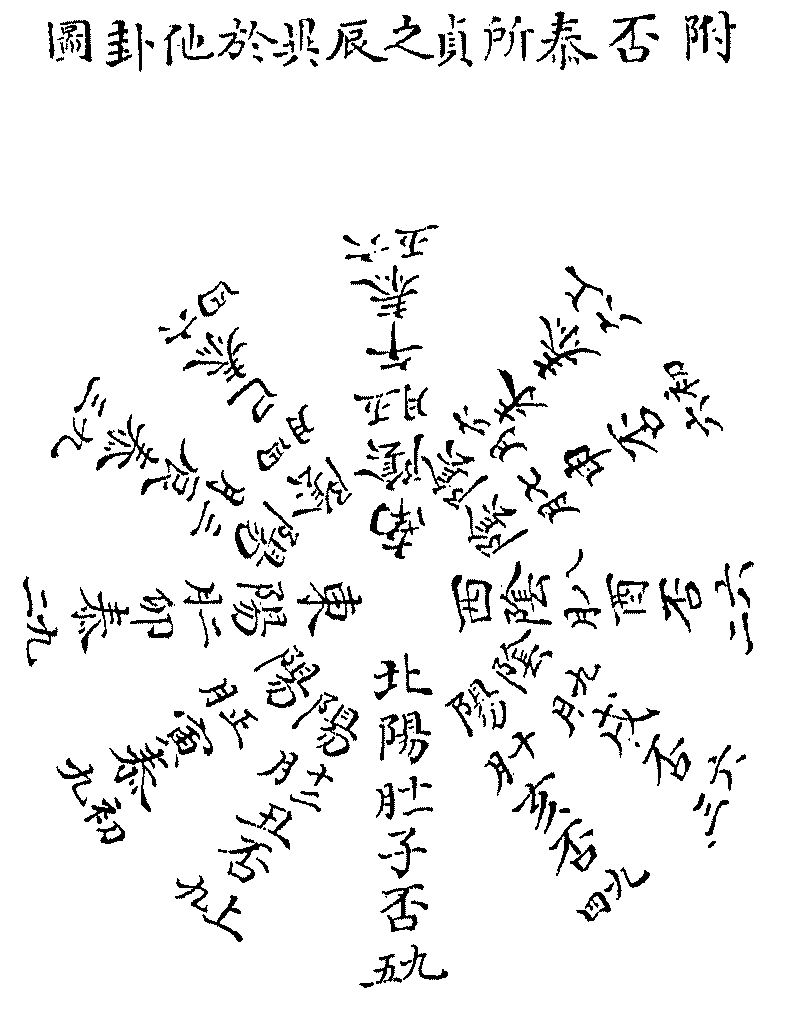 附否泰所貞之辰異於他卦圖
北陽十一月子否九五
陽十二月丑否上九
陽正月寅泰初九
東陽二月卯泰九二
陽三月辰泰九三
陰四月巳泰六四
南陰五月午泰六五
陰六月未泰上六
陰七月申否初六
西陰八月酉否六二
陰九月戌否六三
陽十月亥否九四